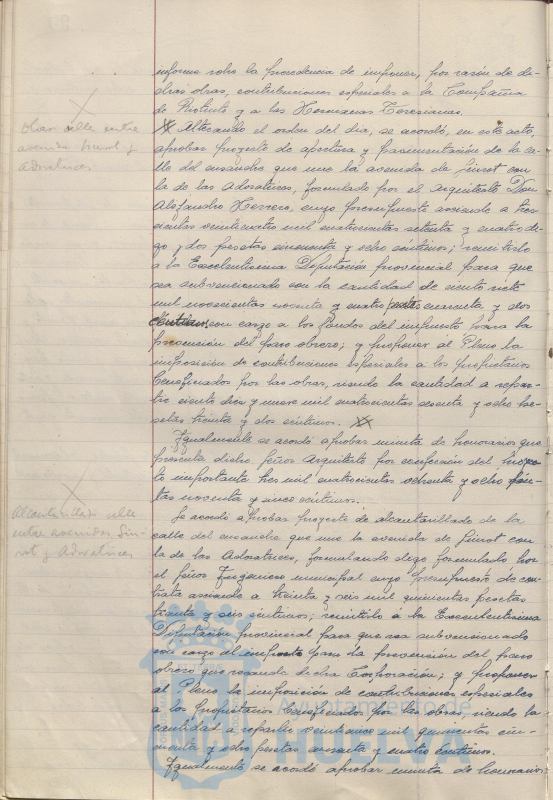 informe sobre la procedencia de imponer, por razón de di-
chas obras, contribuciones especiales a la Compañia
de Riotinto y a las Hermanas Teresianas.
Alterando el orden del día, se acordó, en este acto,
Obras calle entre
avenida Guirot y
Adoratrices
aprobar proyecto de apertura y pavimentación de la ca-
lle del ensanche que une la avenida de Guirot con
la de las Adoratrices, formulado por el Arquitecto Don
Alejandro Herrero, cuyo presupuesto asciende a tres-
cientas veinticuatro mil cuatrocientas setenta y cuatro di-
go y dos pesetas cincuenta y ocho céntimos; remitirlo
a la Excelentísima Diputación provincial para que
sea subvencionado con la cantidad de ciento siete
mil novecientas noventa y cuatro pesetas cuarenta y dos
céntimos con cargo a los fondos del impuesto para la
prevención del paro obrero; y proponer al Pleno la
imposición de contribuciones especiales a los propietarios
beneficiados por las obras, siendo la cantidad a repar-
tir ciento diez y nueve mil cuatrocientas sesenta y ocho pe-
setas treinta y dos céntimos.
Igualmente se acordó aprobar minuta de honorarios que
presenta dicho señor Arquitecto por confección del proyec-
to importante tres mil cuatrocientas ochenta y ocho pese-
tas noventa y cinco céntimos.
Alcantarillado calle
entre avenidas Gui-
rot y Adoratrices
Se acordó aprobar proyecto de alcantarillado de la
calle del ensanche que une la avenida de Guirot con
la de las Adoratrices, formulando digo formulado por
el señor Ingeniero municipal cuyo presupuesto de con-
trata asciende a treinta y seis mil quinientas pesetas
treinta y seis céntimos; remitirlo á la Excelentísima
Diputación provincial para que sea subvencionado
con cargo al impuesto para la prevención del paro
obrero que recauda dicha Corporación; y proponer
al Pleno la imposición de contribuciones especiales
a los propietarios beneficiados por las obras, siendo la
cantidad a repartir veintinueve mil quinientas cin-
cuenta y ocho pesetas sesenta y cuatro céntimos.
Igualmente se acordó aprobar minuta de honorarios
Ayuntamiento de
HUELVA